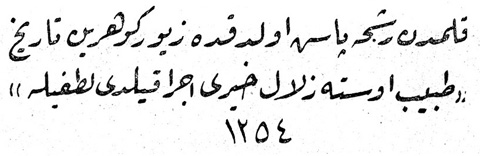 قلمدن رشحه پاس اولدقده زیور کوهرین تاریخ
«طبیب اوسته زلال خیری اجرا قیلدی لطفیله»
١٢٥٤